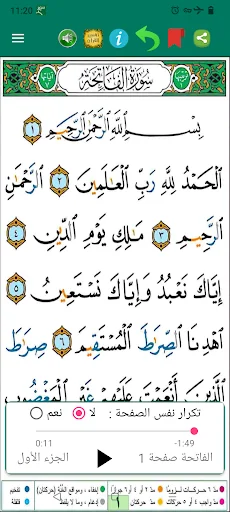 11:20
سُورَةُ الفَاتِحَةِ
بِسْمِ ٱللَّهِ ٱلرَّحْمَٰنِ ٱلرَّحِيمِ ١
ٱلْحَمْدُ لِلَّهِ رَبِّ ٱلْعَٰلَمِينَ ٢ ٱلرَّحْمَٰنِ
ٱلرَّحِيمِ ٣ مَٰلِكِ يَوْمِ ٱلدِّينِ ٤
إِيَّاكَ نَعْبُدُ وَإِيَّاكَ نَسْتَعِينُ ٥
ٱهْدِنَا ٱلصِّرَٰطَ ٱلْمُسْتَقِيمَ ٦ صِرَٰطَ
ٱلَّذِينَ أَنْعَمْتَ عَلَيْهِمْ غَيْرِ ٱلْمَغْضُوبِ
تكرار نفس الصفحة : لا نعم
0:11 -1:49
الفاتحة صفحة 1 الجزء الأول
١